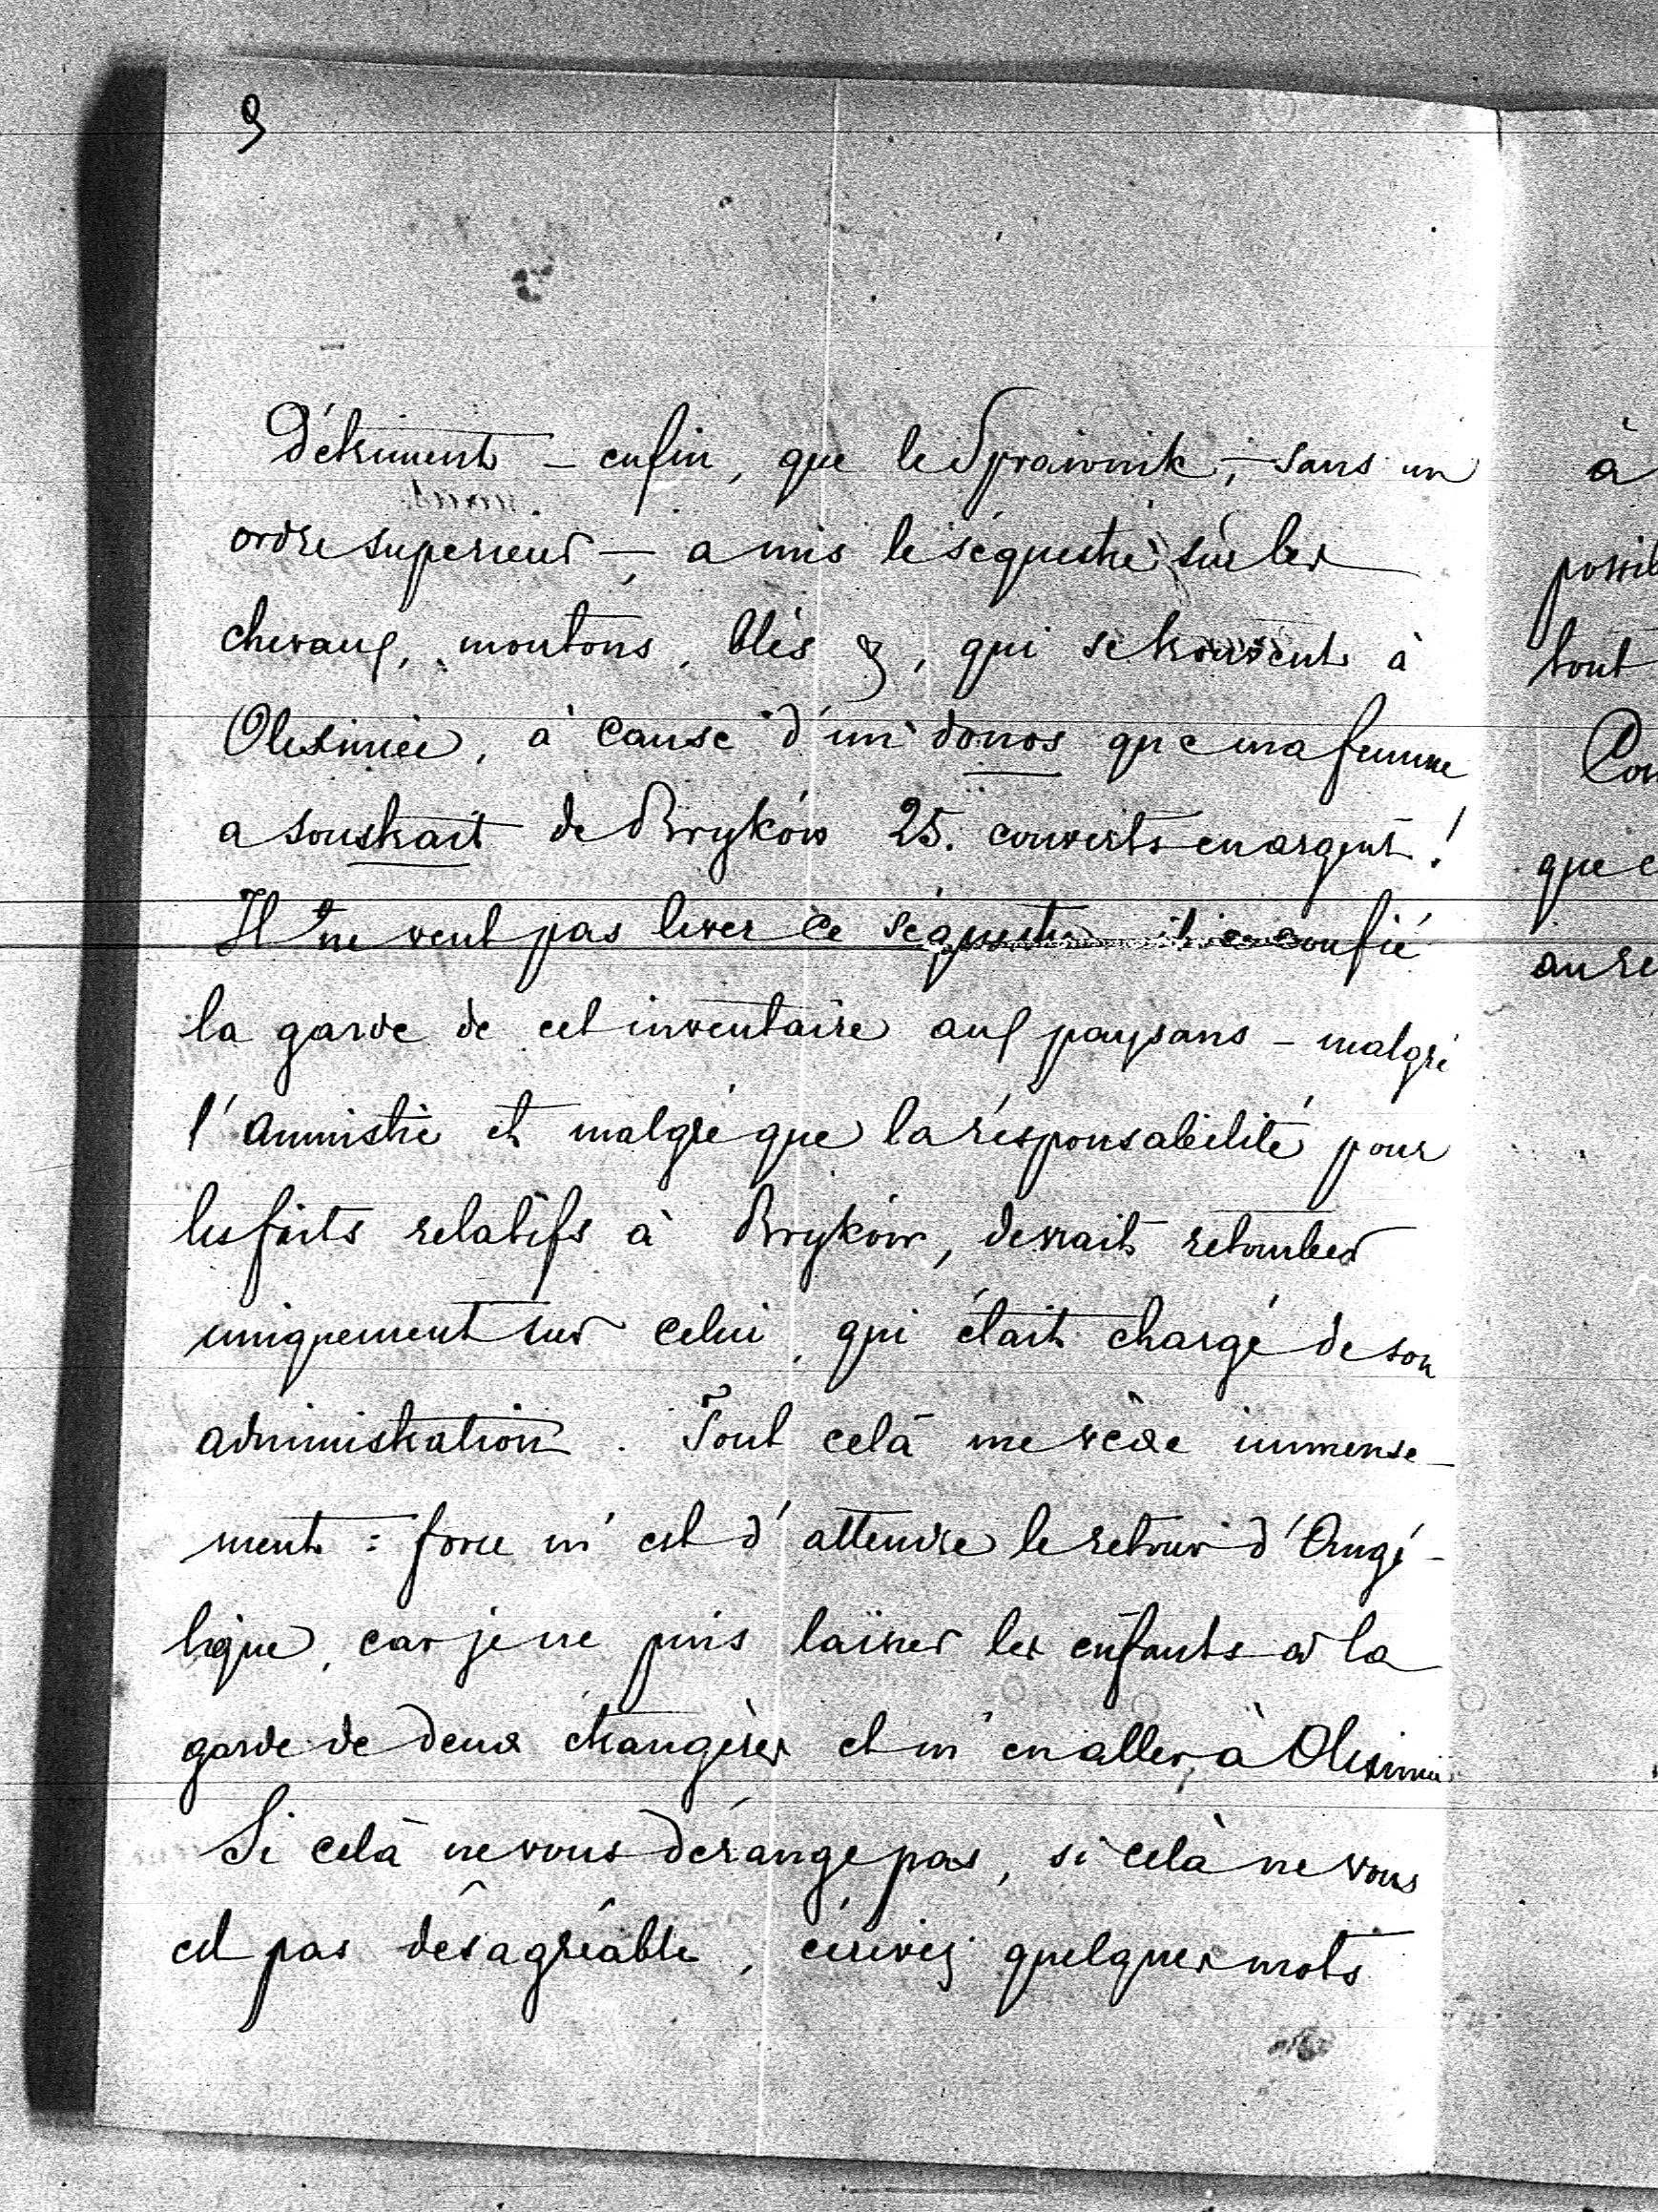 9
Détriment – enfin, que le Sprawnik, – sans un
ordre superieur –, a mis le séquestre sur les
chevaux, moutons, blés &, qui se trouvent à
Oleximiec, à cause d'un donos que ma femme
a soustrait de Bryków 25. couverts en argent !
Il ne veut pas lever ce séquestre confié
la garde de cet inventaire aux paysans – malgré
l'amnistie et malgré que la résponsabilité pour
les faits relatifs à Bryków, devrait retomber
uniquement sur celui, qui était chargé de son
administration. Tout celà me vèxe immense-
ment : force m'est d'attendre le retour d'Angé-
lique, car je ne puis laïsser les enfants à la
garde de deux étrangères et m'en aller, à Oleximiec
Si celà ne vous dérange pas, si celà ne vous
est pas désagréable, écrivez quelques mots
à
possib
tout
Con
que c
au re